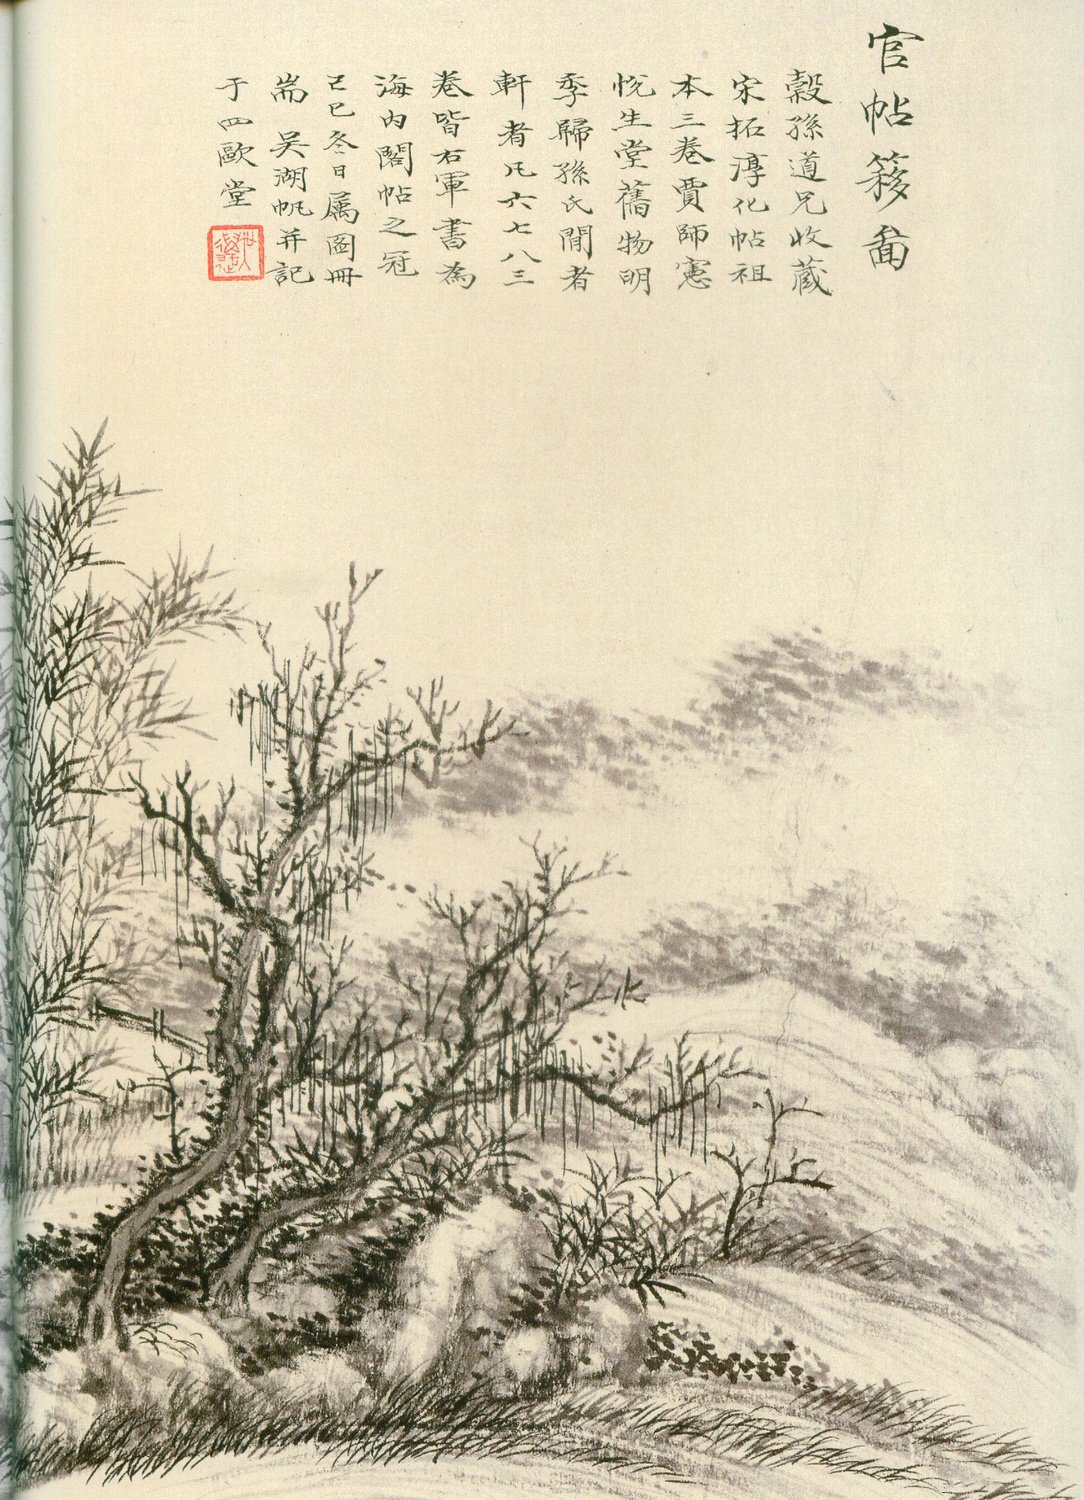 官帖簃啚
穀孫道兄收藏
宋拓淳化帖祖
本三卷賈師憲
悅生堂舊物明
季歸孫氏閒者
軒者凡六七八三
卷皆右軍書為
海內閣帖之冠
己巳冬日屬圖冊
耑 吳湖帆并記
于四歐堂